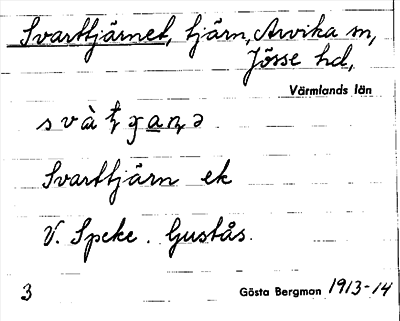 Svarttjärnet, tjärn, Arvika sn,
Jösse hd,
Värmlands län
Svarttjärn ek
V. Speke. Gustås.
3 Gösta Bergman 1913-14